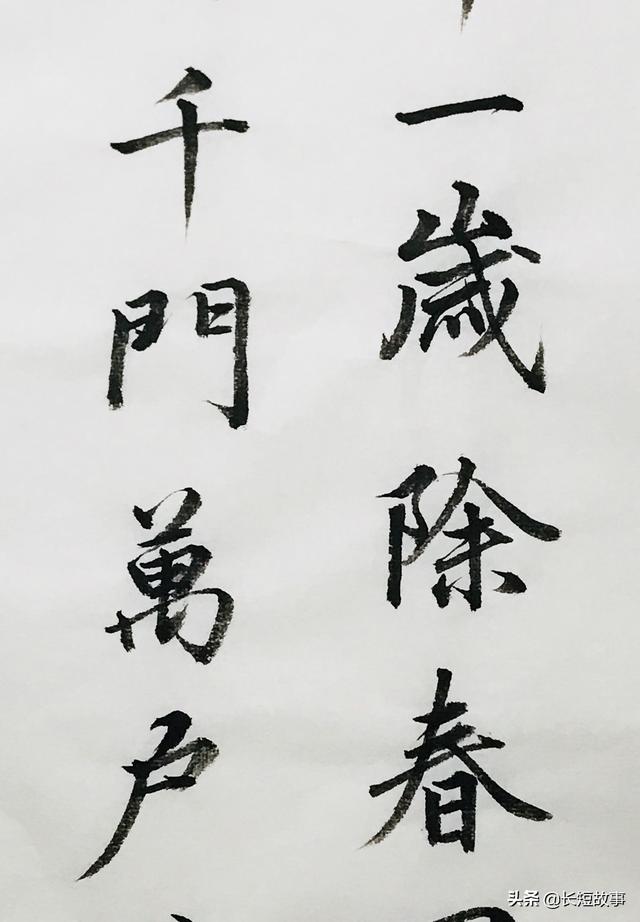 一歲除春
千門萬户
头条 @长短故事